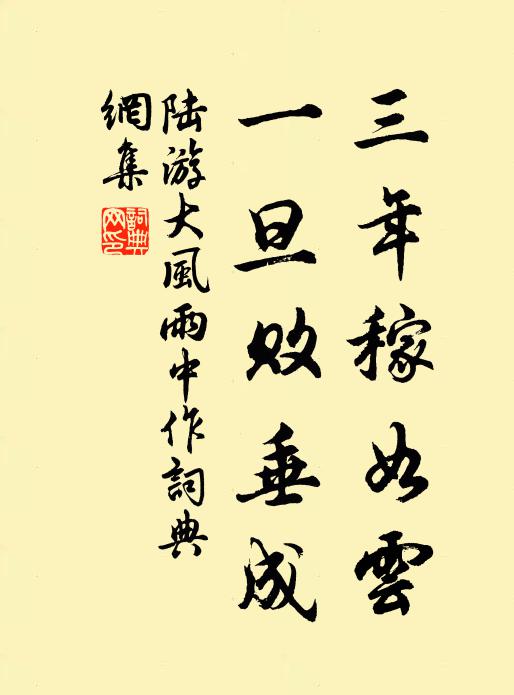 三年稼如雲
一旦敗垂成
陆游大風雨中作詞典
網集
詞典
网印